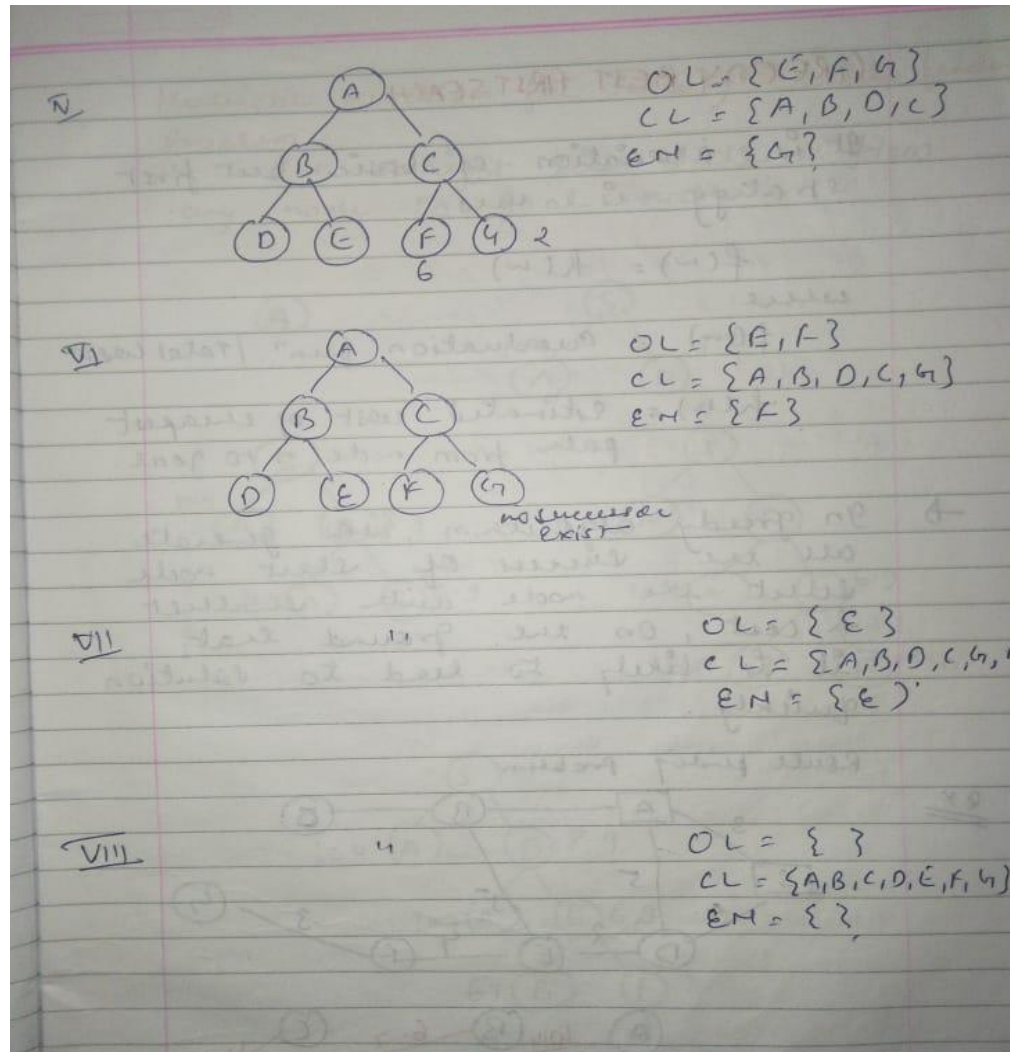 IV
A
B C
D E F G 2
6
OL = {E, F, G}
CL = {A, B, D, C}
EN = {G}
VI
A
B C
D E F G
no successor
exist
OL = {E, F}
CL = {A, B, D, C, G}
EN = {F}
VII " OL = { E }
CL = {A, B, D, C, G,
EN = {E}
VIII " OL = { }
CL = {A, B, C, D, E, F, G}
EN = { }